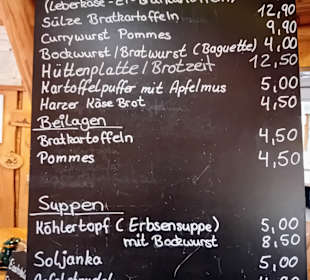 (Leberkäse-Ei-Bratkartoffeln)
Sülze Bratkartoffeln 12,90
Currywurst Pommes 9,90
Bockwurst/Bratwurst (Baguette) 4,00
Hüttenplatte/Brotzeit 12,50
Kartoffelpuffer mit Apfelmus 5,00
Harzer Käse Brot 4,50
Beilagen
Bratkartoffeln 4,50
Pommes 4,50
Suppen
Köhlertopf (Erbsensuppe) 5,00
mit Bockwurst 8,50
Soljanka 5,00